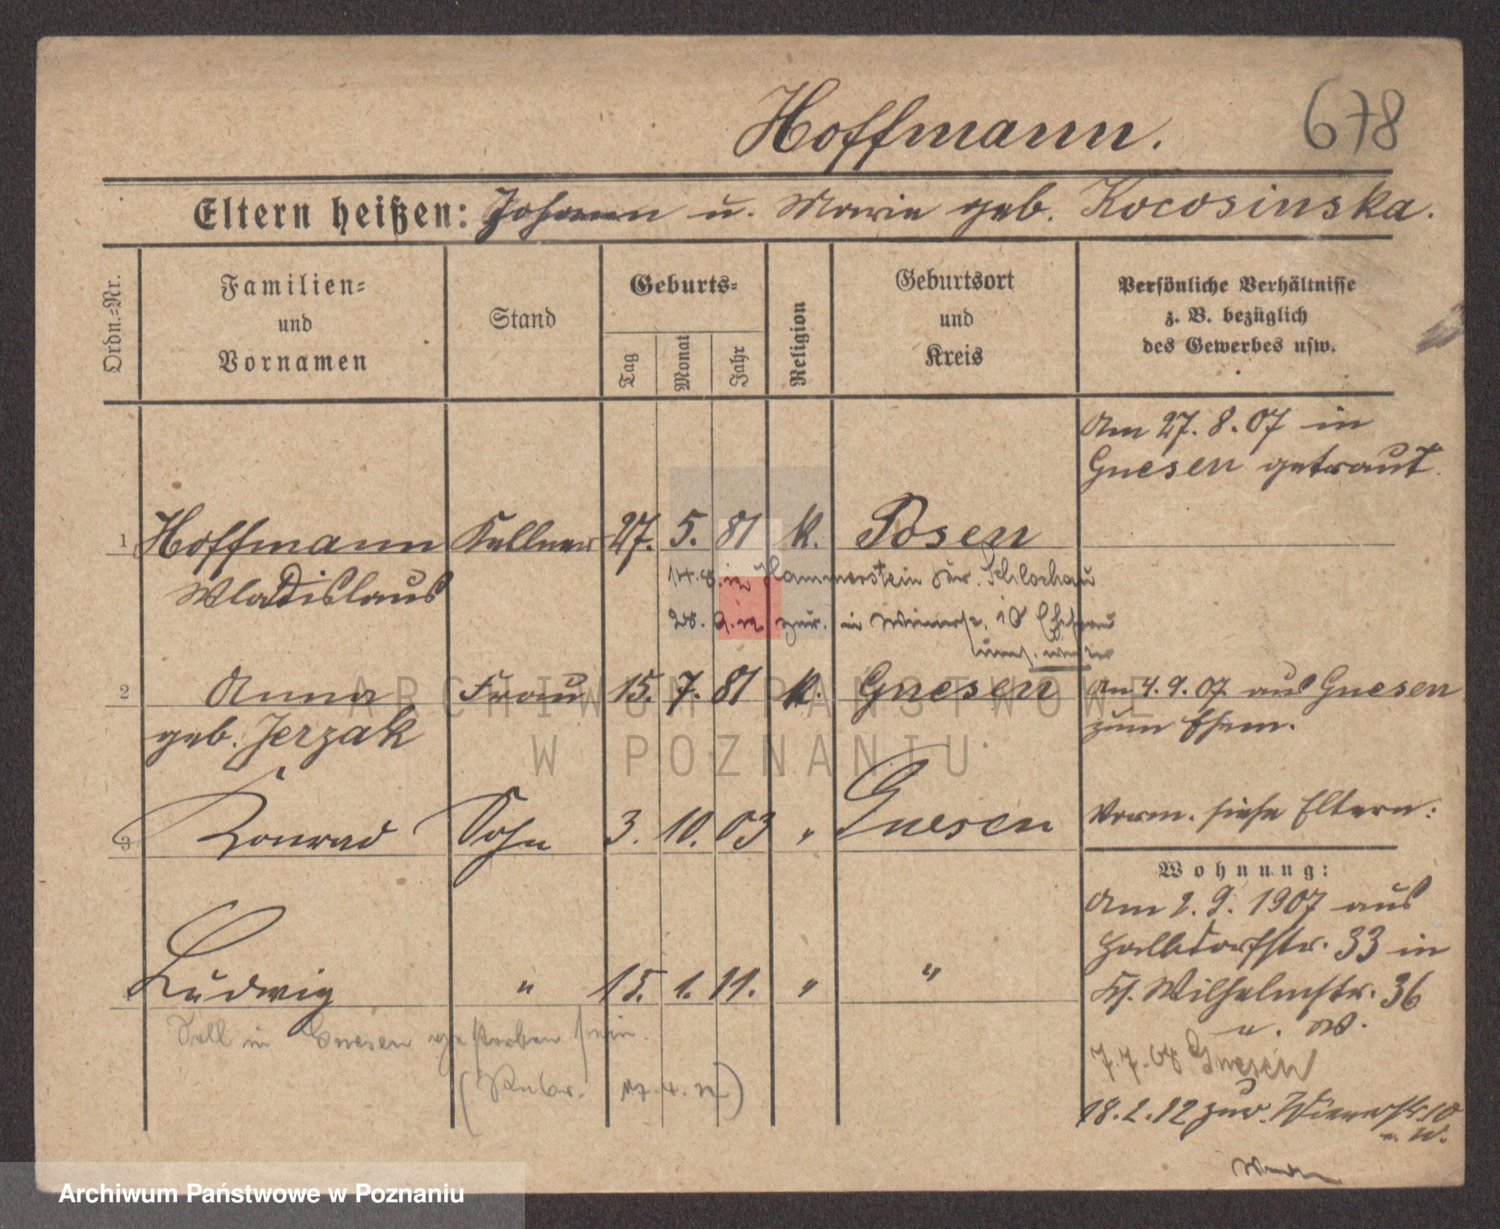 Hoffmann. 678
Eltern heißen: Johann u. Marie geb. Kocosinska.
Ordn.-Nr.
Familien-
und
Vornamen
Stand
Geburts-
Tag
Monat
Jahr
Religion
Geburtsort
und
Kreis
Persönliche Verhältnisse
z. B. bezüglich
des Gewerbes usw.
Am 27. 8. 07 in
Gnesen getraut.
1 Hoffmann Kellner 27. 5. 81 k. Posen
Wladislaus
14.8. in Hammerstein Schlochau
in
2 Anna Frau 15. 7. 81 k. Gnesen Am 4. 9. 07 aus Gnesen
geb. Jerzak zum Ehem.
3 Konrad Sohn 3. 10. 03 " Gnesen Verm. siehe Eltern:
Wohnung:
Am 2. 9. 1907 aus
Halbdorfstr. 33 in
4 Ludwig " 15. 1. 11. " " Wilhelmstr. 36
Soll in Gnesen gestorben sein.
7.7.08 Gnesen
18.2.12 zur. 10
ARCHIWUM PAŃSTWOWE
W POZNANIU
Archiwum Państwowe w Poznaniu